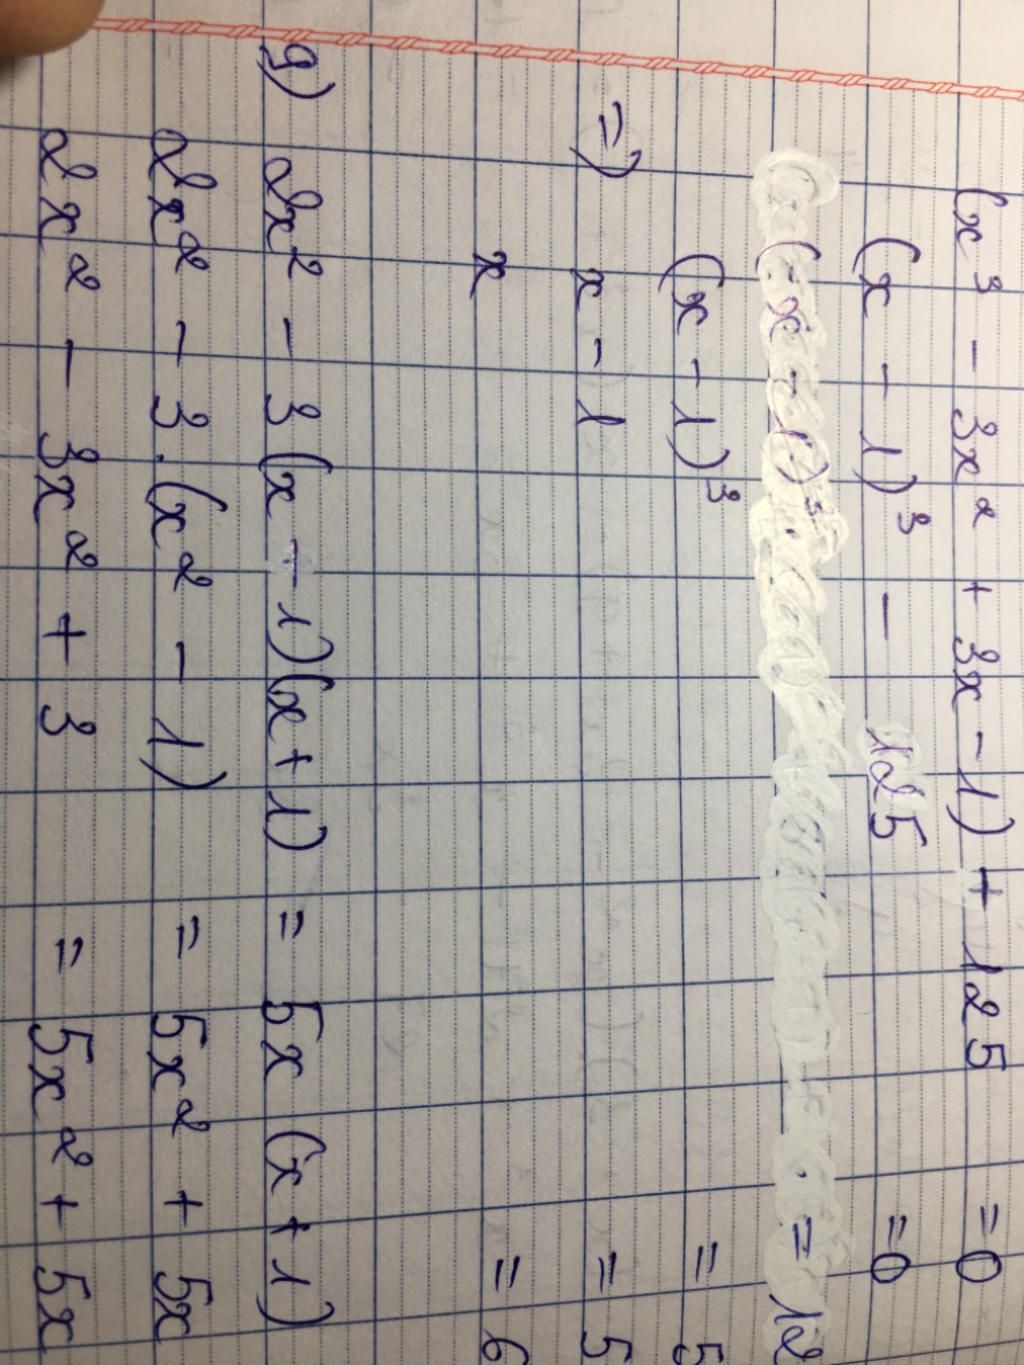 (x³ - 3x² + 3x - 1) + 125 = 0
(x - 1)³ - 125 = 0
(x - 1)³ = 12
(x - 1)³ = 5
=) x - 1 = 5
x = 6
g) 2x² - 3(x - 1)(x + 1) = 5x(x + 1)
2x² - 3.(x² - 1) = 5x² + 5x
2x² - 3x² + 3 = 5x² + 5x